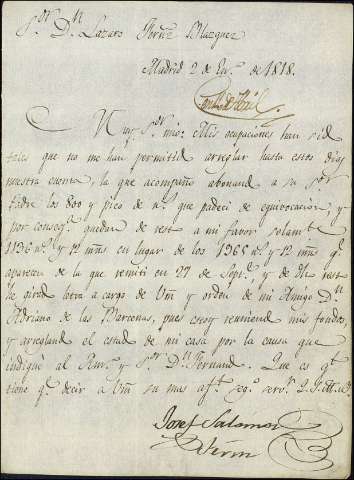 S.or D.n Lazaro Fern.z Blazquez
Madrid 2 de En.o de 1818.
Muy S.or mio: Mis ocupaciones han sid
tales que no me han permitid arreglar hasta estos dias
nuestra cuenta, la que acompaño abonand a su S.or
Padre los 800 y pico de r.s que padeci de equivocacion y
por conseq.a quedan de rest a mi favor solam.te
1136 r.s y 12 mrs en lugar de los 1965 r.s y 12 mrs q.e
aparecen de la que remiti en 27 de Sept.e, y de
he girad letra a cargo de Vm y orden de mi Amigo D.n
Adriano de las Barcenas, pues estoy reuniend mis fondos,
y arregland el estad de mi casa por la causa que
indiqué al y S.or D.n Fernand. Que es q.to
tiene q.e decir a Vm su mas af.to seg.o serv.r Q.S.M.B.
Josef Salomon